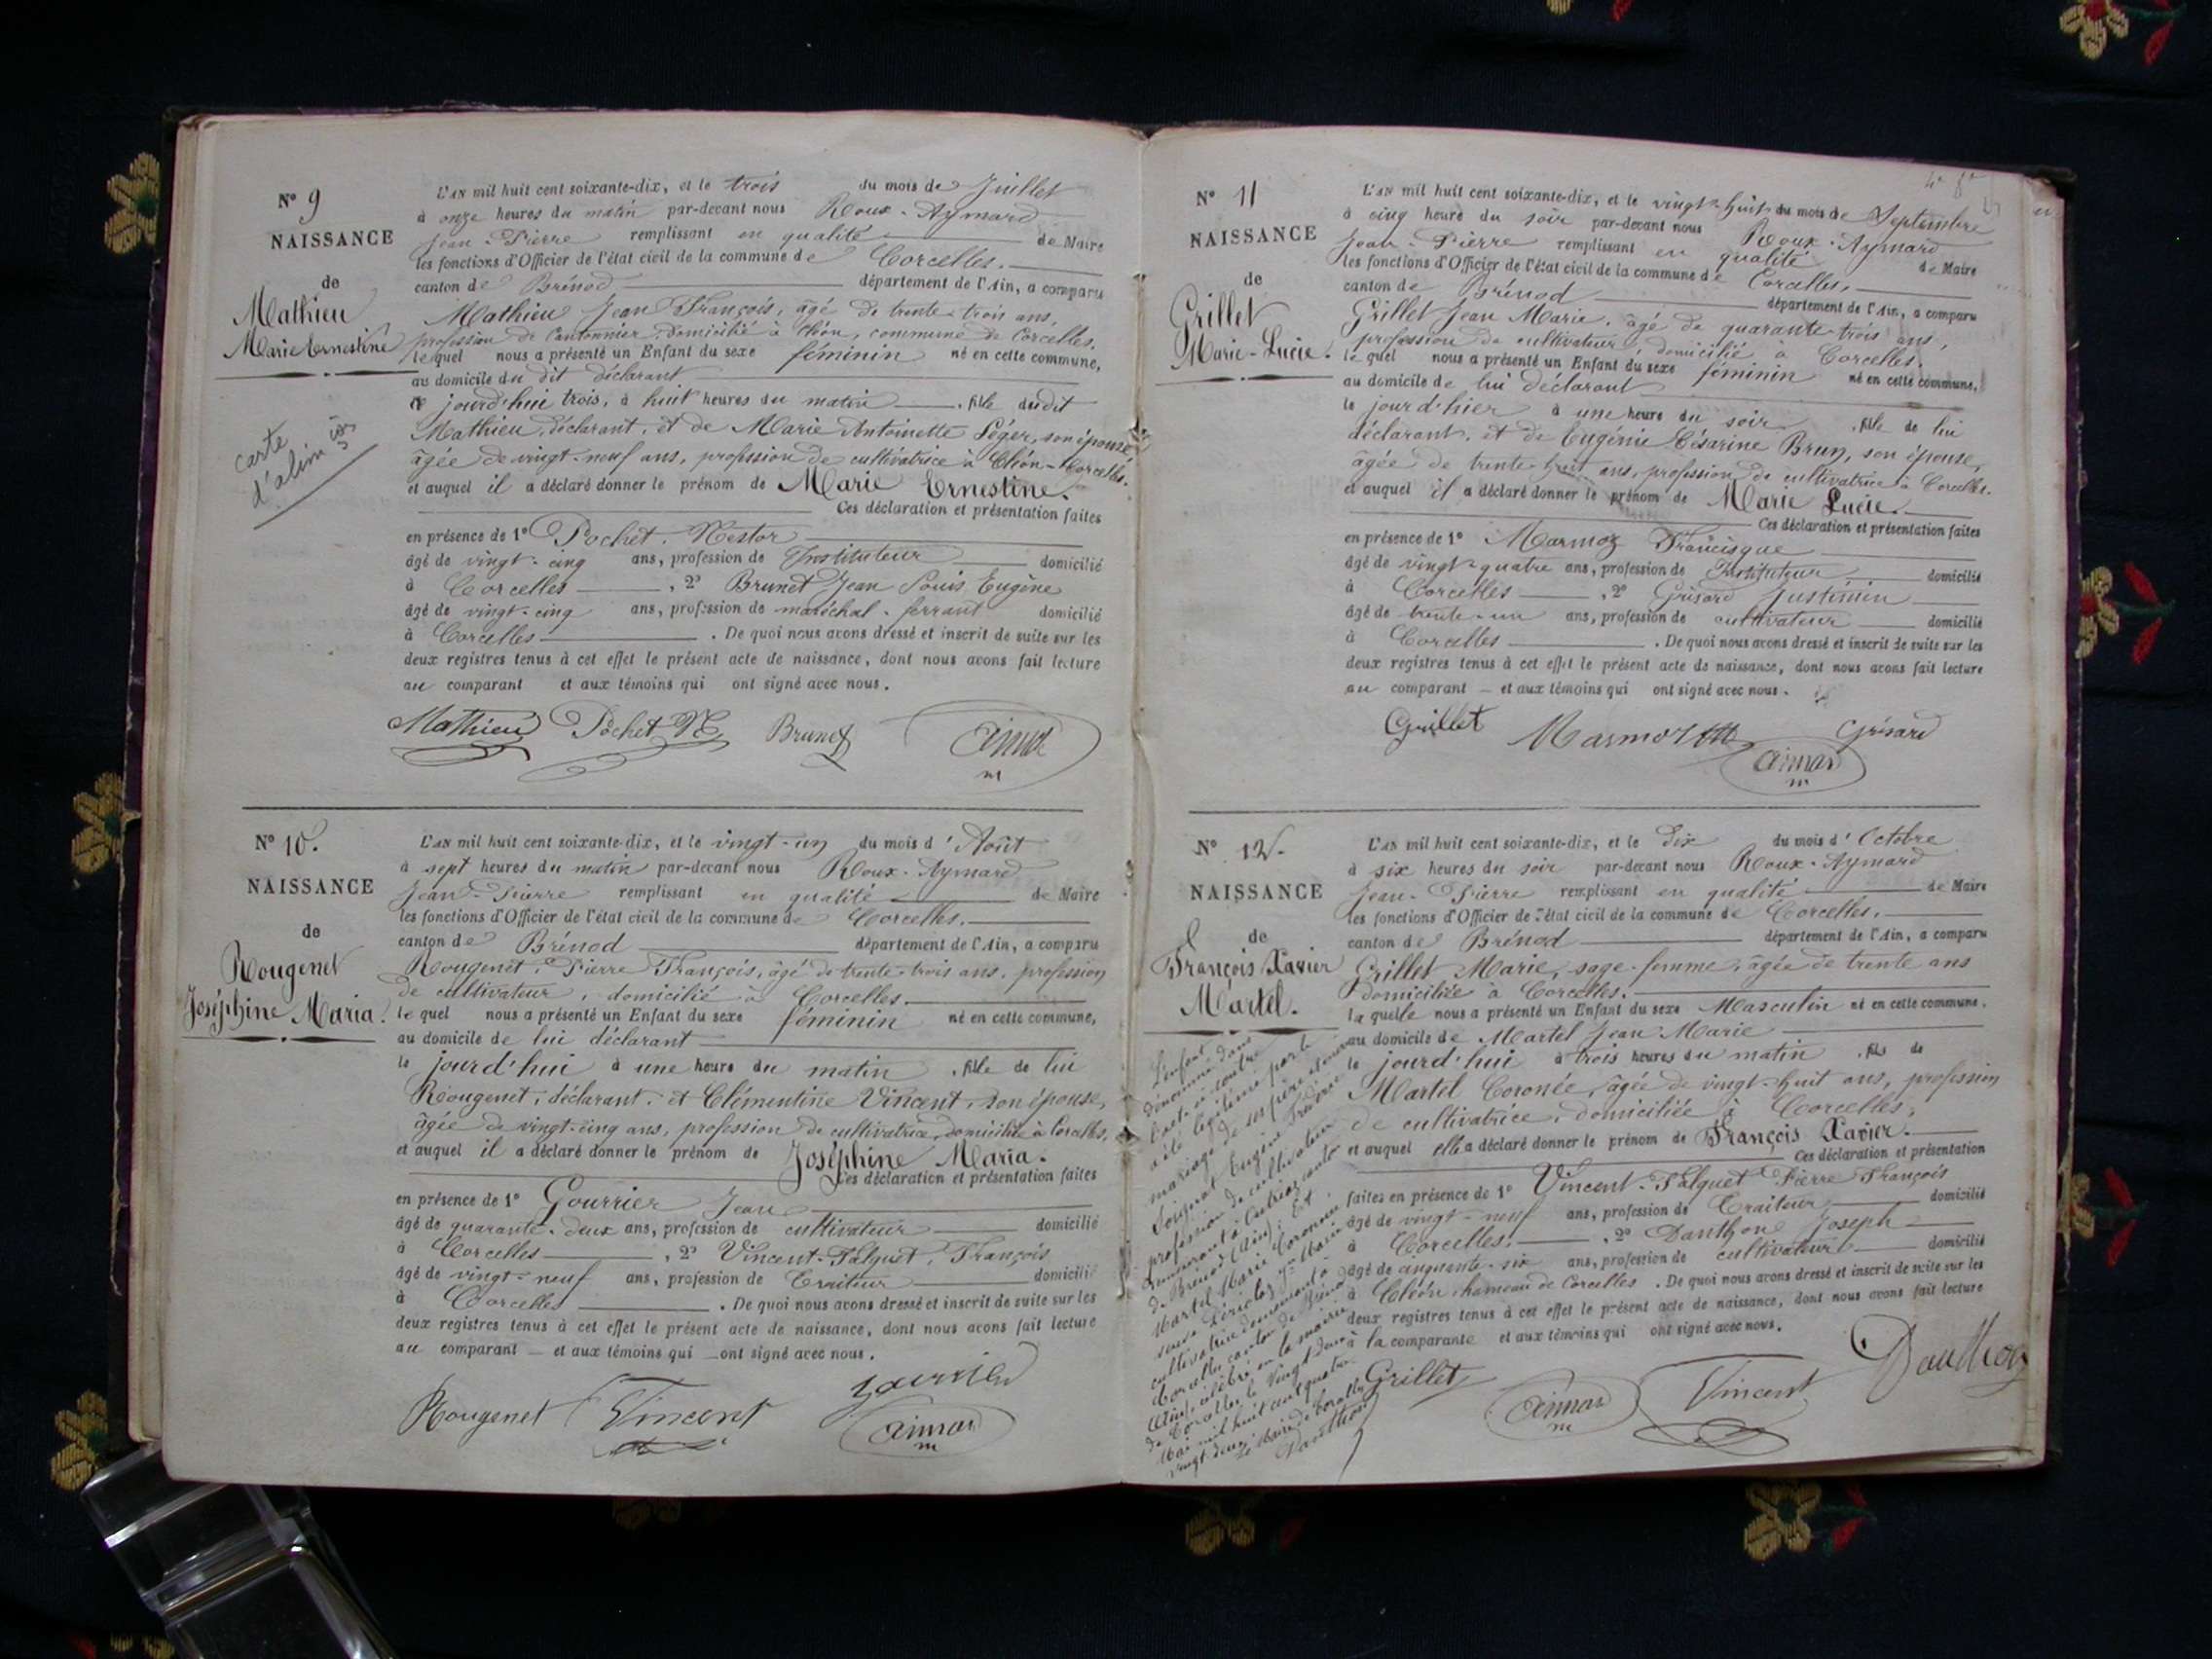 N° 9
NAISSANCE
de
Mathieu
Marie Ernestine
carte
d'alim ion
L'AN mil huit cent soixante-dix, et le trois du mois de Juillet
à onze heures du matin par-devant nous Roux-Aymard
Jean-Pierre remplissant en qualité de Maire
les fonctions d'Officier de l'état civil de la commune de Corcelles.
canton de Brénod département de l'Ain, a comparu
Mathieu Jean François, âgé de trente-trois ans,
profession de Cantonnier, domicilié à Cléon, commune de Corcelles.
lequel nous a présenté un Enfant du sexe féminin né en cette commune,
au domicile du dit déclarant
jourd'hui trois, à huit heures du matin, fille dudit
Mathieu, déclarant, et de Marie Antoinette Léger, son épouse,
âgée de vingt-neuf ans, profession de cultivatrice à Cléon-Corcelles.
et auquel il a déclaré donner le prénom de Marie Ernestine.
Ces déclaration et présentation faites
en présence de 1° Pochet, Nestor
âgé de vingt-cinq ans, profession de Instituteur domicilié
à Corcelles, 2° Brunet Jean Louis Eugène
âgé de vingt-cinq ans, profession de maréchal-ferrant domicilié
à Corcelles. De quoi nous avons dressé et inscrit de suite sur les
deux registres tenus à cet effet le présent acte de naissance, dont nous avons fait lecture
au comparant et aux témoins qui ont signé avec nous.
Mathieu Pochet N. Brunet Aimar
m
N° 10.
NAISSANCE
de
Rougenet
Joséphine Maria.
L'AN mil huit cent soixante-dix, et le vingt-un du mois d'Août
à sept heures du matin par-devant nous Roux-Aymard
Jean-Pierre remplissant en qualité de Maire
les fonctions d'Officier de l'état civil de la commune de Corcelles.
canton de Brénod département de l'Ain, a comparu
Rougenet, Pierre François, âgé de trente-trois ans, profession
de cultivateur, domicilié à Corcelles.
lequel nous a présenté un Enfant du sexe féminin né en cette commune,
au domicile de lui déclarant
le jourd'hui à une heure du matin, fille de lui
Rougenet, déclarant, et Clémentine Vincent, son épouse,
âgée de vingt-cinq ans, profession de cultivatrice, domiciliée à Corcelles,
et auquel il a déclaré donner le prénom de Joséphine Maria.
Ces déclaration et présentation faites
en présence de 1° Gourrier Jean
âgé de quarante-deux ans, profession de cultivateur domicilié
à Corcelles, 2° Vincent-Falquet, François
âgé de vingt-neuf ans, profession de Traiteur domicilié
à Corcelles. De quoi nous avons dressé et inscrit de suite sur les
deux registres tenus à cet effet le présent acte de naissance, dont nous avons fait lecture
au comparant et aux témoins qui ont signé avec nous.
Rougenet Vincent Gourrier
Aimar
m
N° 11
NAISSANCE
de
Grillet
Marie-Lucie.
L'AN mil huit cent soixante-dix, et le vingt-huit du mois de Septembre
à cinq heure du soir par-devant nous Roux-Aymard
Jean-Pierre remplissant en qualité de Maire
les fonctions d'Officier de l'état civil de la commune de Corcelles,
canton de Brénod département de l'Ain, a comparu
Grillet Jean Marie, âgé de quarante-trois ans,
profession de cultivateur, domicilié à Corcelles.
lequel nous a présenté un Enfant du sexe féminin né en cette commune,
au domicile de lui déclarant
le jourd'hier à une heure du soir, fille de lui
déclarant, et de Eugénie Césarine Brun, son épouse,
âgée de trente-huit ans, profession de cultivatrice à Corcelles.
et auquel il a déclaré donner le prénom de Marie Lucie.
Ces déclaration et présentation faites
en présence de 1° Marmoz Francisque
âgé de vingt-quatre ans, profession de Instituteur domicilié
à Corcelles, 2° Grisard Justinin
âgé de trente-un ans, profession de cultivateur domicilié
à Corcelles. De quoi nous avons dressé et inscrit de suite sur les
deux registres tenus à cet effet le présent acte de naissance, dont nous avons fait lecture
au comparant et aux témoins qui ont signé avec nous.
Grillet Marmoz Grisard
Aimar
m
N° 12.
NAISSANCE
de
François Xavier
Martel.
L'enfant
dénommé dans
l'acte ci-contre
a été légitimé par le
mariage de ses père et mère
Joignot Eugène
profession de cultivateur
demeurant à canton
de Brénod (Ain). Et
Martel Marie Coronnée
veuve
cultivatrice demeurant à
Corcelles canton de Brénod
(Ain), célébré en la mairie
de Corcelles le vingt deux
Mai mil huit cent quatre
vingt-deux.
Le Maire de Corcelles
Danthon
L'AN mil huit cent soixante-dix, et le Dix du mois d'Octobre
à six heures du soir par-devant nous Roux-Aymard
Jean-Pierre remplissant en qualité de Maire
les fonctions d'Officier de l'état civil de la commune de Corcelles.
canton de Brénod département de l'Ain, a comparu
Grillet Marie, sage-femme, âgée de trente ans
domiciliée à Corcelles.
laquelle nous a présenté un Enfant du sexe Masculin né en cette commune.
au domicile de Martel Jean-Marie
le jourd'hui à trois heures du matin, fils de
Martel Coronée, âgée de vingt-huit ans, profession
de cultivatrice, domiciliée à Corcelles,
et auquel elle a déclaré donner le prénom de François Xavier.
Ces déclaration et présentation
faites en présence de 1° Vincent-Falquet Pierre François
âgé de vingt-neuf ans, profession de Traiteur domicilié
à Corcelles, 2° Danthon Joseph
âgé de cinquante-six ans, profession de cultivateur domicilié
à Cléon hameau de Corcelles. De quoi nous avons dressé et inscrit de suite sur les
deux registres tenus à cet effet le présent acte de naissance, dont nous avons fait lecture
à la comparante et aux témoins qui ont signé avec nous.
Grillet Aimar Vincent Danthon
m